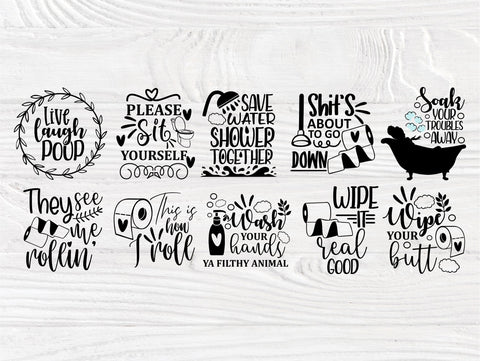 Live
laugh
POOP
PLEASE
Sit
YOURSELF
SAVE
WATER
SHOWER
TOGETHER
Shit's
ABOUT
TO GO
DOWN
Soak
YOUR
TROUBLES
AWAY
They see
me
rollin'
This is
how
I roll
Wash
YOUR
hands
YA FILTHY ANIMAL
WIPE
IT
real
GOOD
Wipe
YOUR
butt